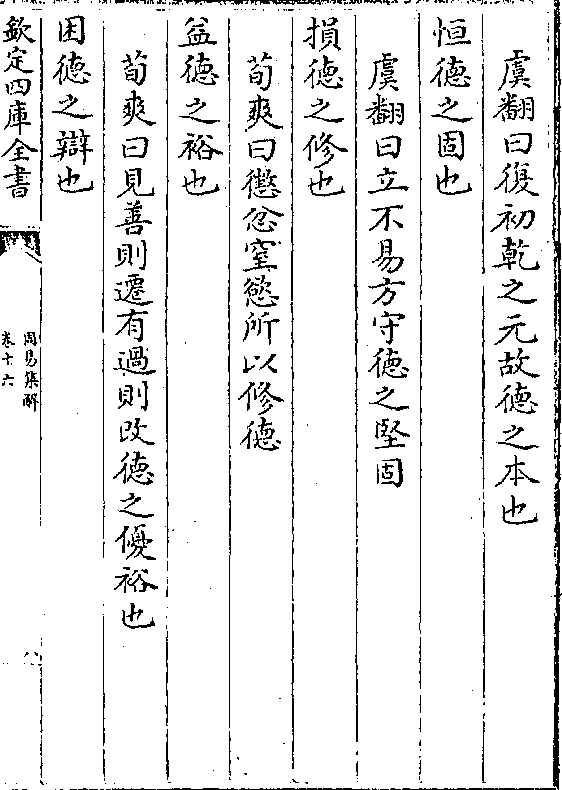 虞翻曰復初乾之元故德之本也
恒德之固也
虞翻曰立不易方守德之堅固
損德之修也
荀爽曰懲忿窒慾所以修德
益德之裕也
荀爽曰見善則遷有過則改德之優裕也
困德之辯也
欽定四庫全書
周易集解
卷十六
八